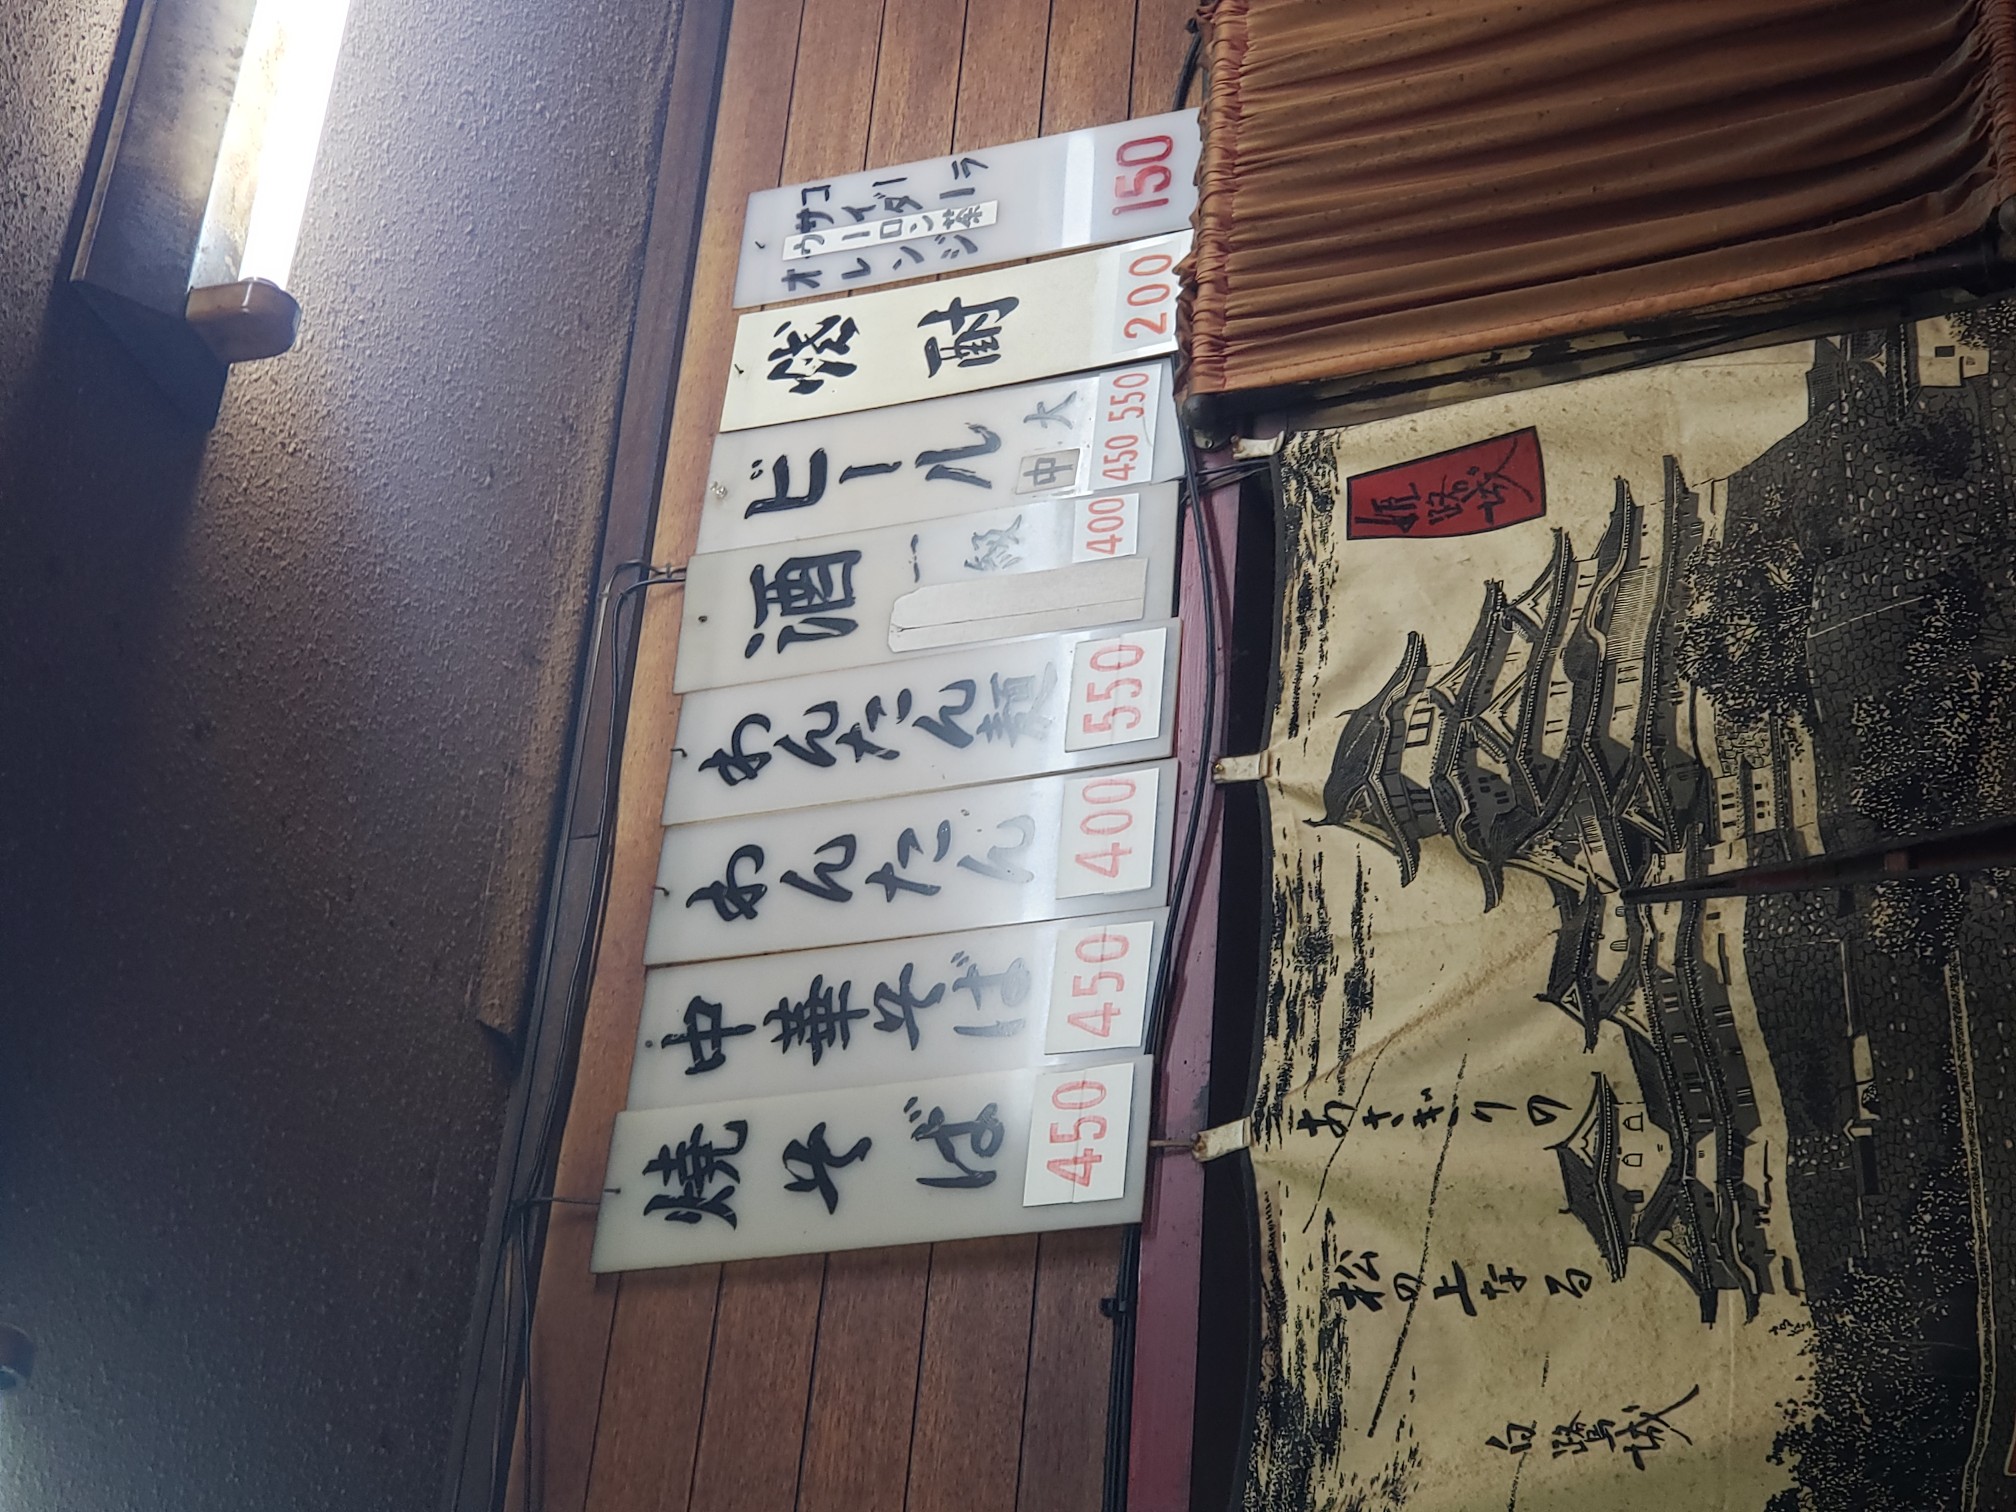 コーラ
サイダー
ウーロン茶
オレンジ
150
焼酎
200
ビール
大
中
450 550
酒
一級
400
わんたん麺
550
わんたん
400
中華そば
450
焼そば
450
姫路城
あさぎりの
松の上なる
白鷺城